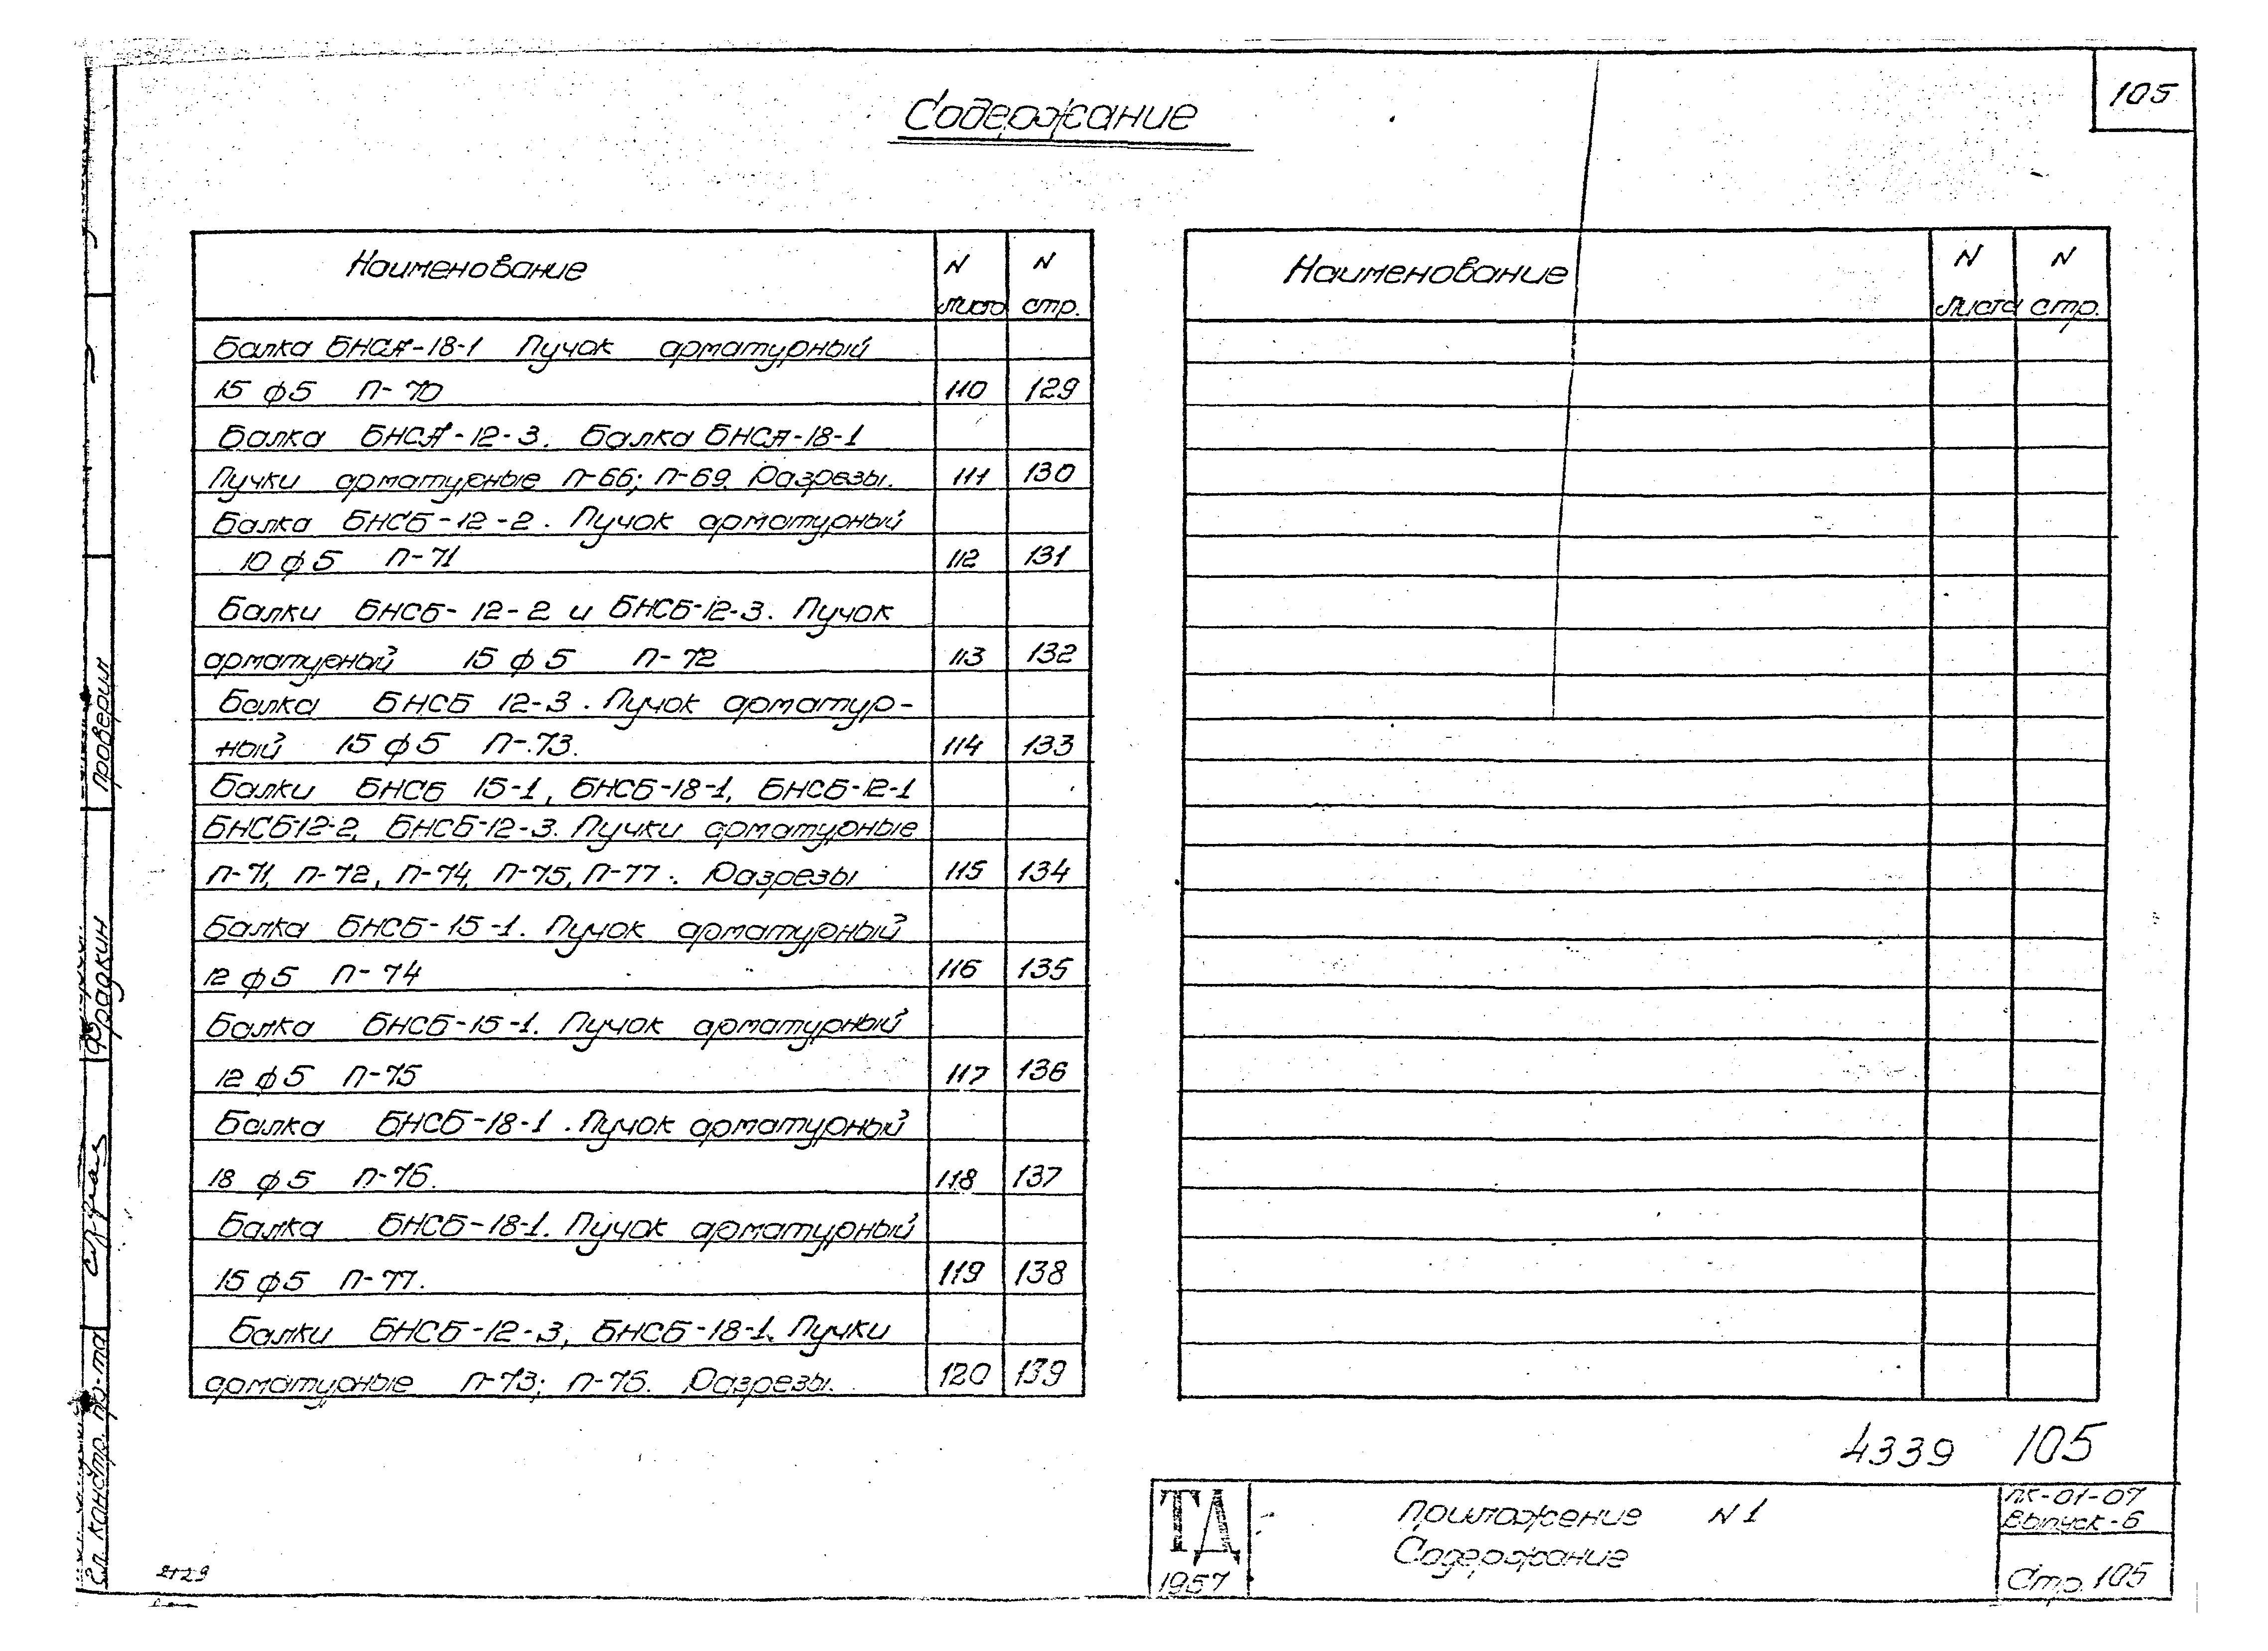 105
Содержание
Наименование N листа N стр.
Балка БНСА-18-1 Пучок арматурный
15 ф5 П-70 110 129
Балка БНСА-12-3. Балка БНСА-18-1
Пучки арматурные П-66; П-69. Разрезы. 111 130
Балка БНСБ-12-2. Пучок арматурный
10 ф5 П-71 112 131
Балки БНСБ-12-2 и БНСБ-12-3. Пучок
арматурный 15 ф5 П-72 113 132
Балка БНСБ 12-3. Пучок арматур-
ный 15 ф5 П-73. 114 133
Балки БНСБ 15-1, БНСБ-18-1, БНСБ-12-1
БНСБ-12-2, БНСБ-12-3. Пучки арматурные
П-71, П-72, П-74, П-75, П-77. Разрезы 115 134
Балка БНСБ-15-1. Пучок арматурный
12 ф5 П-74 116 135
Балка БНСБ-15-1. Пучок арматурный
12 ф5 П-75 117 136
Балка БНСБ-18-1. Пучок арматурный
18 ф5 П-76. 118 137
Балка БНСБ-18-1. Пучок арматурный
15 ф5 П-77. 119 138
Балки БНСБ-12-3, БНСБ-18-1. Пучки
арматурные П-73; П-76. Разрезы. 120 139
Наименование N листа N стр.
4339 105
ТД
1957
Приложение N 1
Содержание
ПК-01-07
Выпуск-6
Стр. 105
2129
проверил
Фрадкин
Гл. констр. пр-та